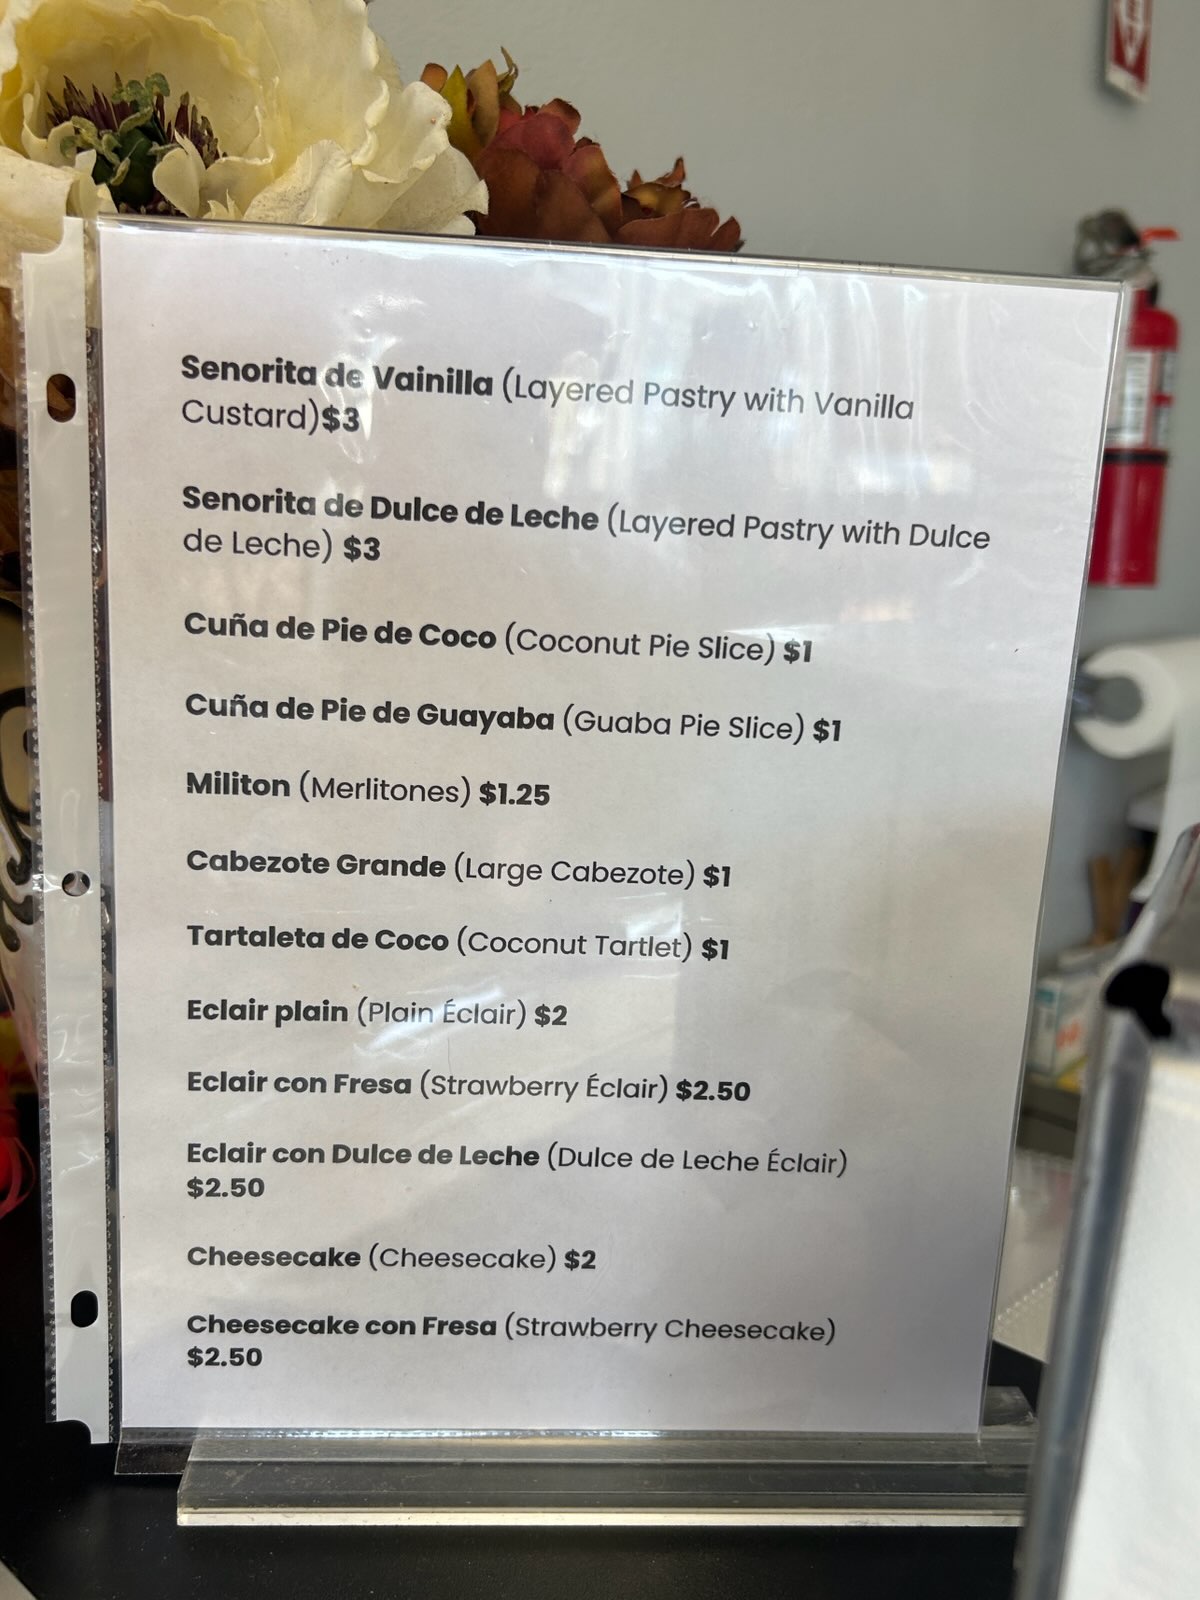 Senorita de Vainilla (Layered Pastry with Vanilla
Custard)$3
Senorita de Dulce de Leche (Layered Pastry with Dulce
de Leche) $3
Cuña de Pie de Coco (Coconut Pie Slice) $1
Cuña de Pie de Guayaba (Guaba Pie Slice) $1
Militon (Merlitones) $1.25
Cabezote Grande (Large Cabezote) $1
Tartaleta de Coco (Coconut Tartlet) $1
Eclair plain (Plain Éclair) $2
Eclair con Fresa (Strawberry Éclair) $2.50
Eclair con Dulce de Leche (Dulce de Leche Éclair)
$2.50
Cheesecake (Cheesecake) $2
Cheesecake con Fresa (Strawberry Cheesecake)
$2.50